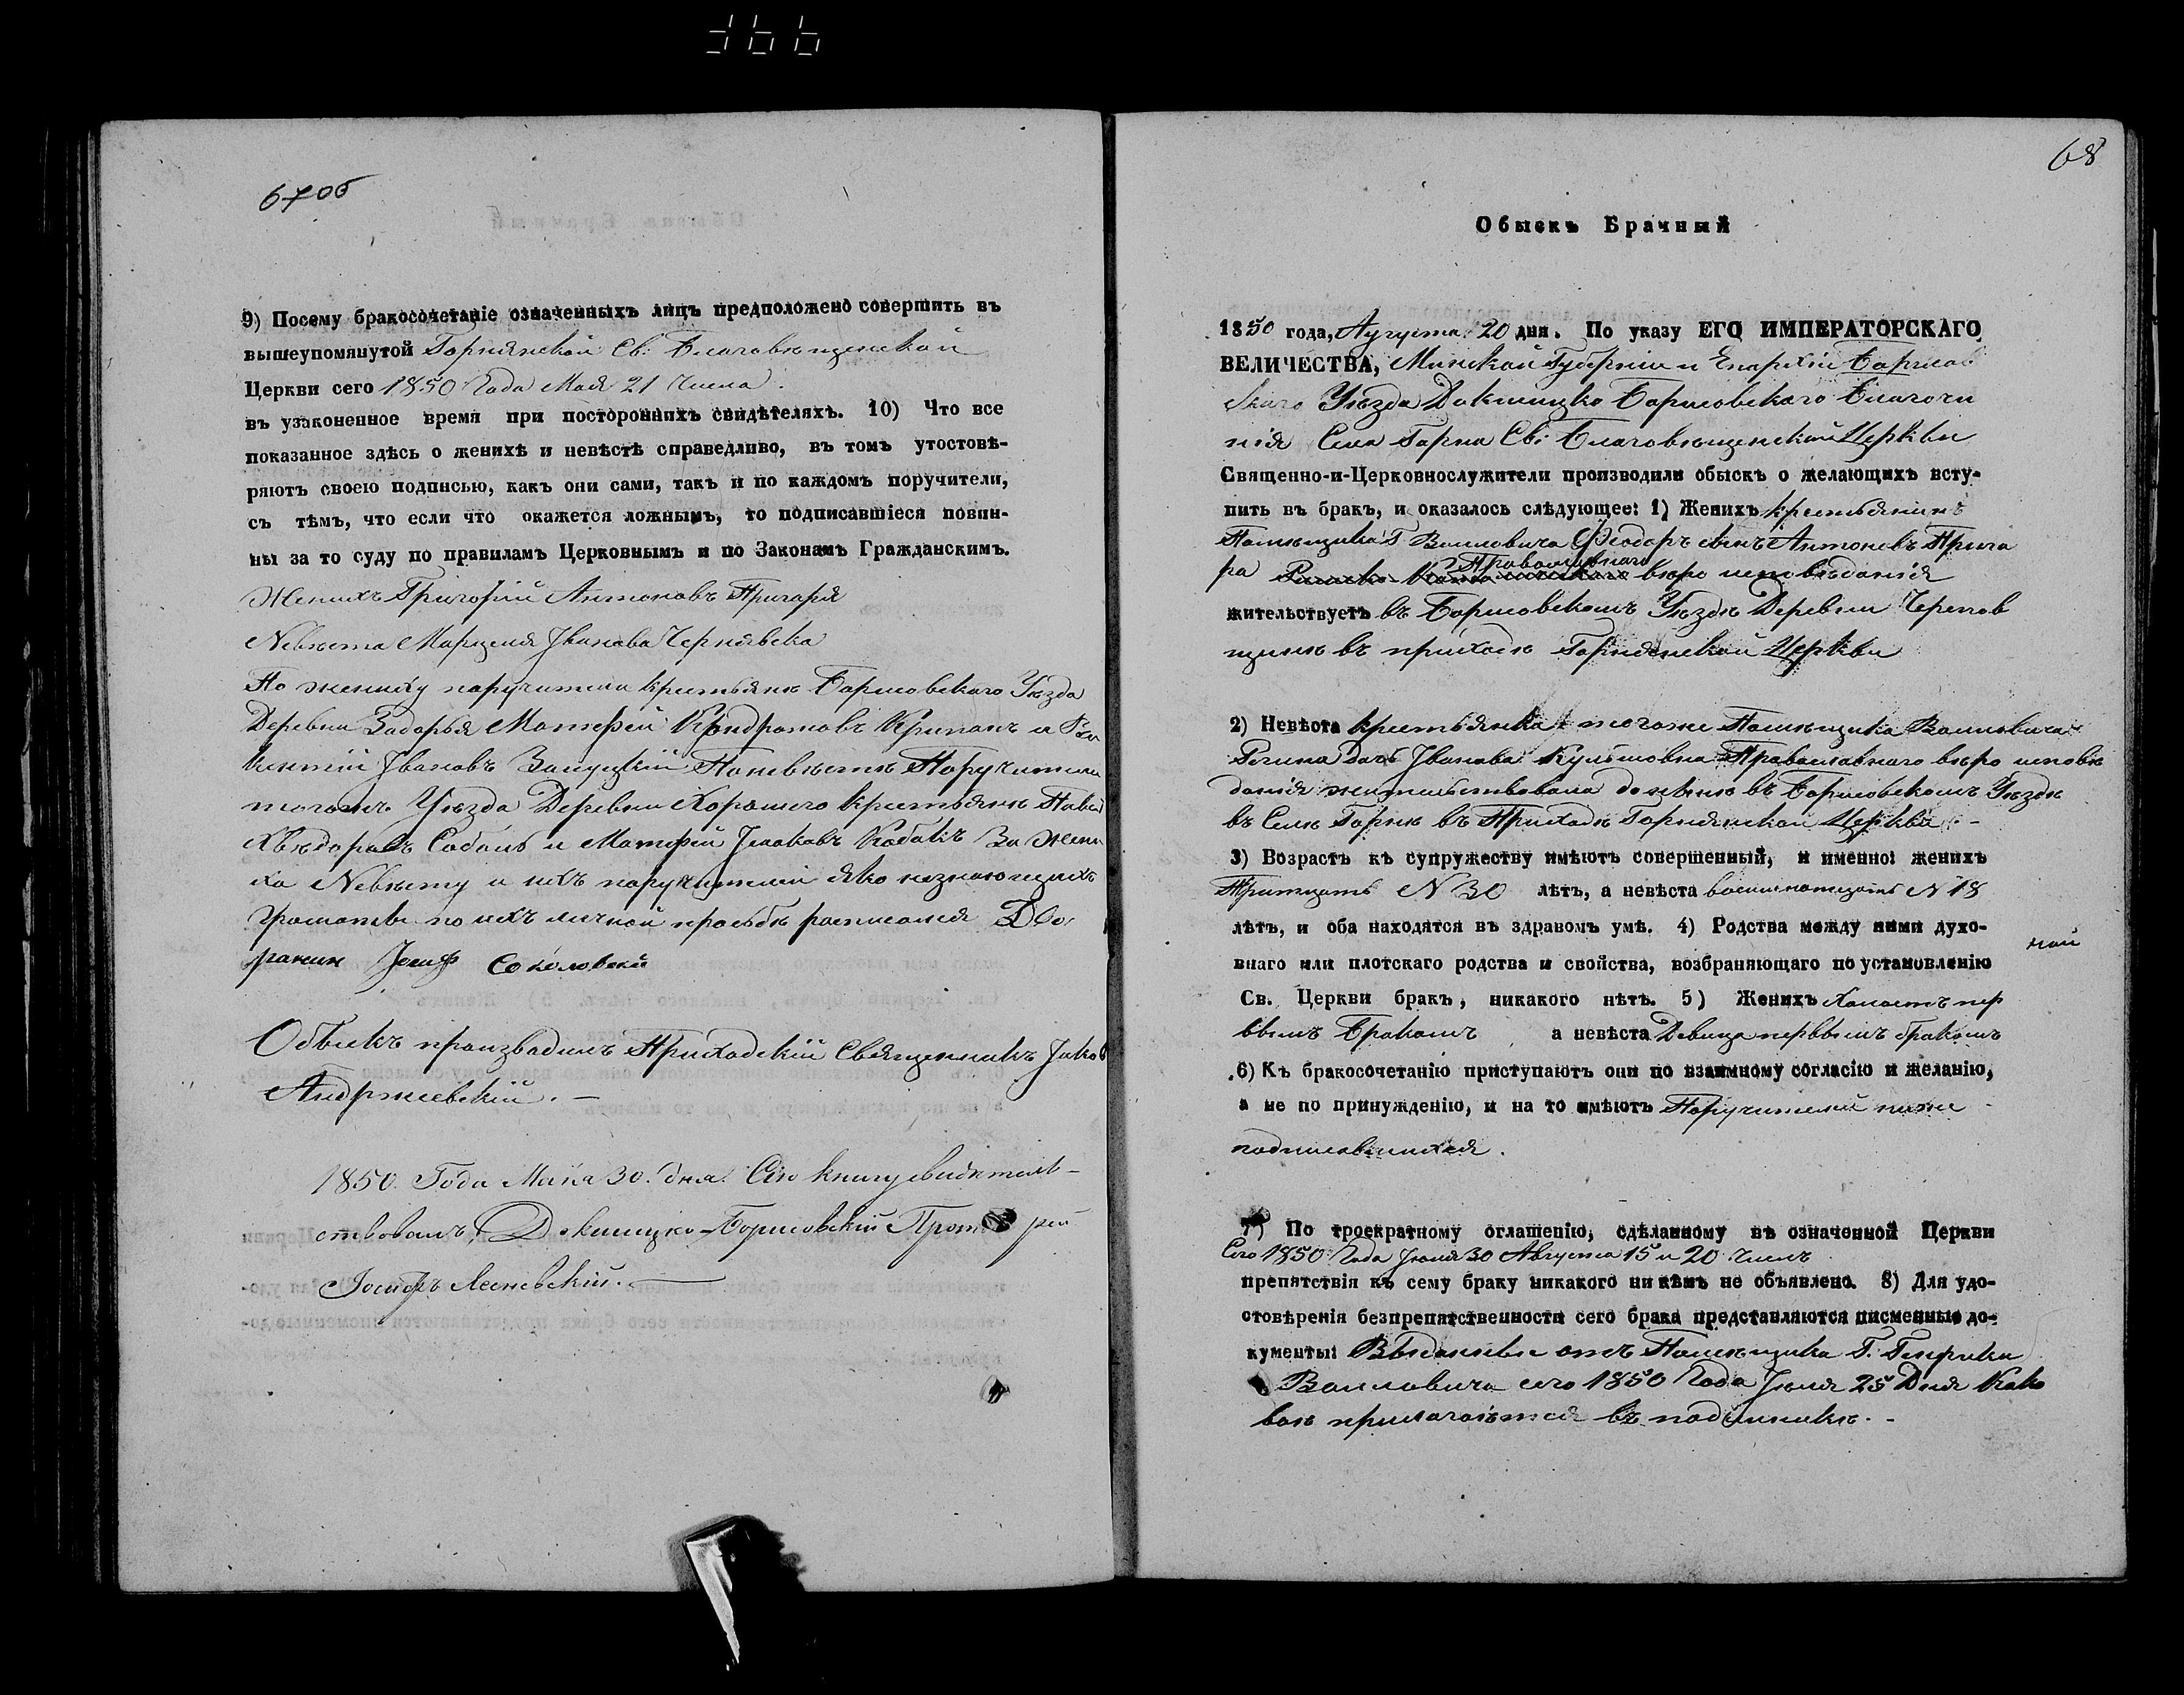 67об
9) Посему бракосочетаніе означенныхъ лицъ предположено совершить въ
вышеупомянутой Горнянской Св: Благовѣщенской
Церкви сего 1850 Года Мая 21 Числа.
въ узаконенное время при постороннихъ свидѣтеляхъ. 10) Что все
показанное здѣсь о женихѣ и невѣстѣ справедливо, въ томъ утостовѣ-
ряютъ своею подписью, какъ они сами, такъ и по каждомъ поручители,
съ тѣмъ, что если что окажется ложнымъ, то подписавшіеся повин-
ны за то суду по правиламъ Церковнымъ и по Законамъ Гражданскимъ.
Женихъ Григорій Антоновъ Пригаря
Nевѣста Марцеля Јванова Чернявска
По жениху паручители крестьяне Борисовскаго Уѣзда
Деревни Задорья Матфей Кондратовъ Крипанъ и
Јвановъ Залуцкій Поневѣстѣ Поручители
тогожъ Уѣзда Деревни Хорошего крестьяне Павел
Хвѣдоровъ Соболь и Матфей Јсаковъ Кобакъ За жени
ха Nевѣсту и ихъ паручителей яко незнающихъ
грамоты по ихъ личной прозьбѣ расписался Дво
ранин Јосиф Соколовскй
Обыскъ произвадилъ Приходскій Священникъ Јаков
Андржеевскій. –
1850. Года Маія 30. дня. Сію книгу свидѣтель-
ствовалъ, Докшицко-Борисовскій Прото рей
Іосифъ Лесневскій. —
68
Обыскъ Брачный
1850 года, Аугуста 20 дня. По указу ЕГО ИМПЕРАТОРСКАГО
ВЕЛИЧЕСТВА, Минской Губерніи и Епархіи Борисов
скаго Уѣзда Докшицко Борисовскаго Благочи
нія Села Горна Св: Благовѣщенской Церкви
Священно-и-Церковнослужители производили обыскъ о желающихъ всту-
пить въ бракъ, и оказалось слѣдующее: 1) Женихъ крестьянинъ
Помѣщика Г Воиловича Феодоръ сынъ Антоневъ Прига
Православнаго
ра вѣро исповѣданія
жительствуетъ въ Борисовскомъ Уѣздѣ Деревни Черепов
щинѣ въ приходѣ Горнянской Церкви
2) Невѣста крестьянка тогоже Помѣщика Воиловича
Регина дочь Јванова Кульшовна Православнаго вѣро исповѣ
данія жительствовала донынѣ въ Борисовскомъ Уѣздѣ
въ Селѣ Горнѣ въ Приходѣ Горнянской Церкви. –
3) Возрастъ къ супружеству имѣютъ совершенный, и именно: женихъ
Тритцать N 30 лѣтъ, а невѣста восимнатцать N 18
лѣтъ, и оба находятся въ здравомъ умѣ. 4) Родства между ними духо-
внаго или плотскаго родства и свойства, возбраняющаго по установленію
Св. Церкви бракъ, никакого нѣтъ. 5) Женихъ Холостъ пер
ввымъ Бракомъ а невѣста Девица перввымъ бракомъ
6) Къ бракосочетанію приступаютъ они по взаимному согласію и желанію,
а не по принужденію, и на то имѣютъ Поручителей ниже
подписавшихся.
7) По троекратному оглашенію, сдѣланному въ означенной Церкви
Сего 1850 Года Јюля 30 Августа 15 и 20 числъ
препятствія къ сему браку никакого никѣмъ не объявлено. 8) Для удо-
стовѣренія безпрепятственности сего брака представляются писменные до-
кументы: отъ Помѣщика Г. Генрика
Воиловича сего 1850 Года Јюля 25 Дня Како
вое прилагаѣтся въ подлинникѣ. -